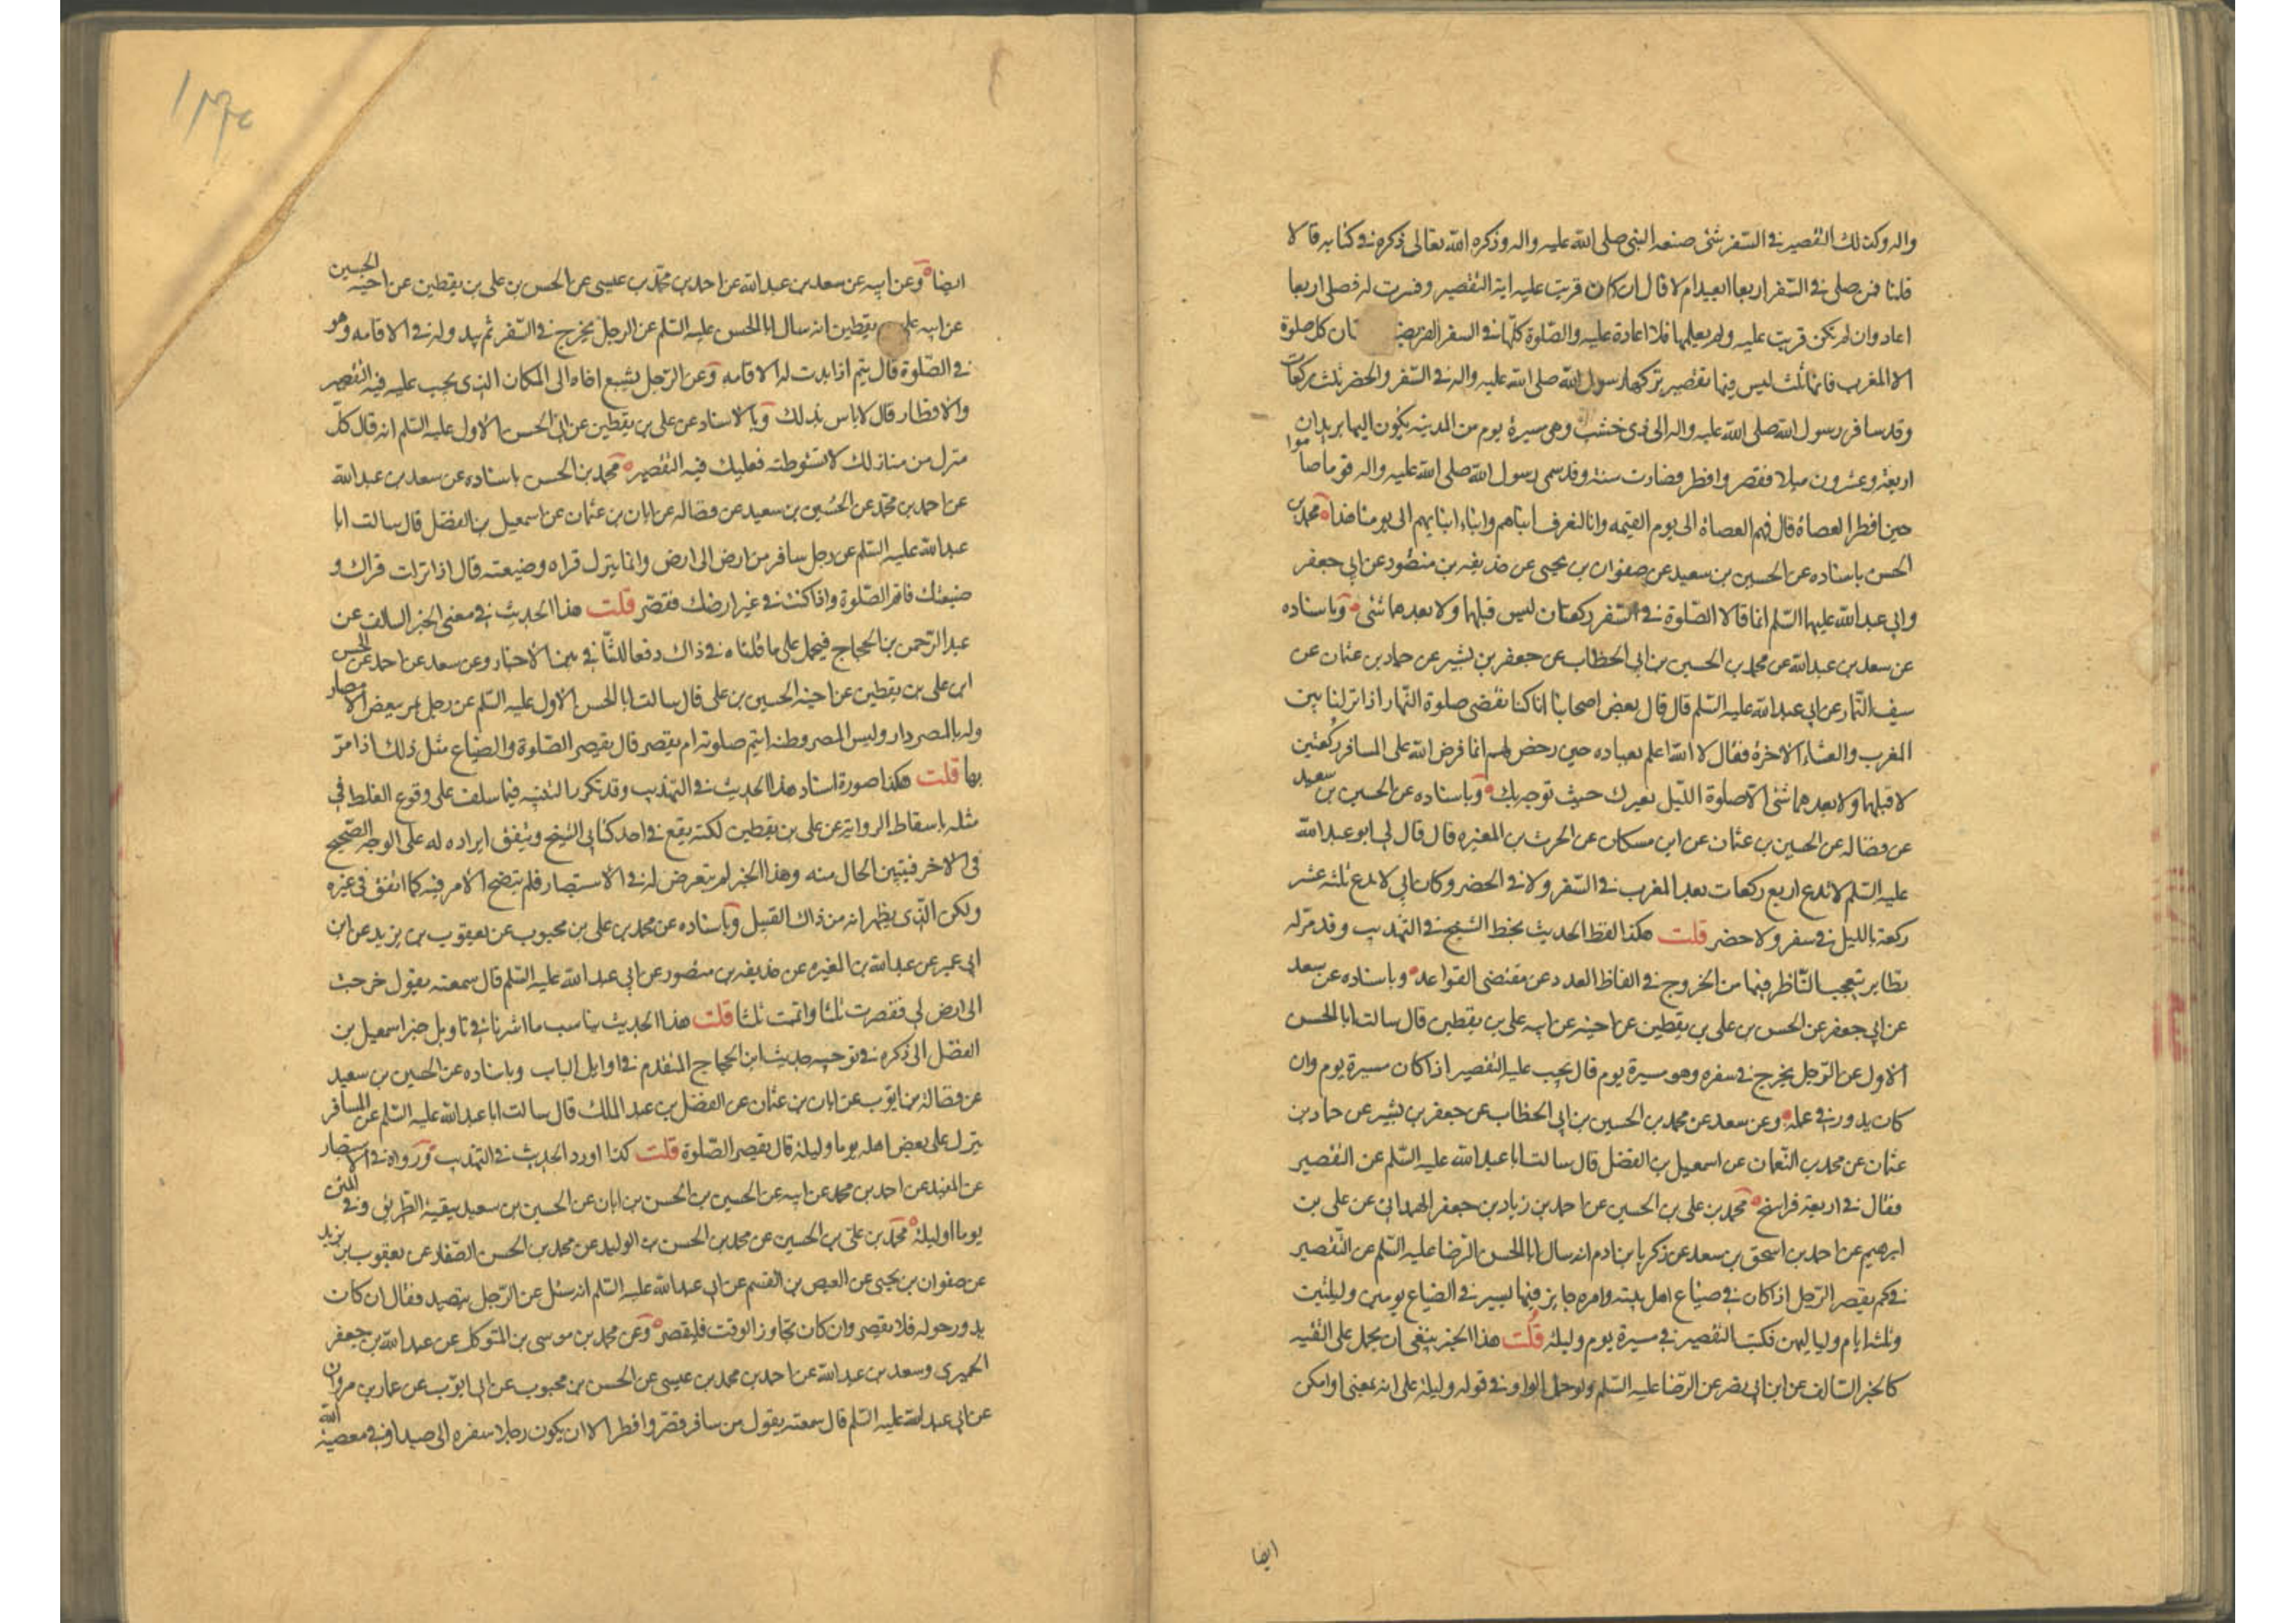 واله وكذلك التقصير في السفر شئ صنعه النبي صلى الله عليه واله وذكره الله تعالى ذكره في كتابه قالا
قلنا فمن صلى في السفر اربعا ايعيد ام لا قال ان كان قريت عليه اية التقصير وفسرت له فصلى اربعا
اعاد وان لم تكن قريت عليه ولم يعلمها فلا اعادة عليه والصلوة كلها في السفر الفريضة تان كل صلوة
الا المغرب فانها ثلث ليس فيها تقصير تركها رسول الله صلى الله عليه واله في السفر والحضر ثلث ركعات
وقد سافر رسول الله صلى الله عليه واله الى ذي خشب وهي مسيرة يوم من المدينه يكون اليها بريدان
اربعة وعشرون ميلا فقصر وافطر فصارت سنة وقد سمى رسول الله صلى الله عليه واله قوما صاموا
حين افطر العصاة قال فهم العصاة الى يوم القيمه وانا لنعرف ابناهم وابناء ابنائهم الى يومنا هذا محمد بن
الحسن باسناده عن الحسين بن سعيد عن صفوان بن يحيى عن حذيفه بن منصور عن ابي جعفر
وابي عبد الله عليهما السلم انما قالا الصلوة في السفر ركعتان ليس قبلها ولا بعدهما شئ وباسناده
عن سعد بن عبد الله عن محمد بن الحسين بن ابي الخطاب عن جعفر بن بشير عن حماد بن عثمان عن
سيف التمار عن ابي عبد الله عليه السلم قال قال بعض اصحابنا انا كنا نقضي صلوة النهار اذا نزلنا بين
المغرب والعشاء الاخرة فقال لا الله اعلم بعباده حين رخص لهم انما فرض الله على المسافر ركعتين
لا قبلها ولا بعدهما شئ الا صلوة الليل بعيرك حيث توجه بك وباسناده عن الحسين بن سعيد
عن فضاله عن الحسين بن عثمان عن ابن مسكان عن الحرث بن المغيره قال قال لي ابو عبد الله
عليه السلم لا تدع اربع ركعات بعد المغرب في السفر ولا في الحضر وكان ابي لا يدع ثلثه عشر
ركعة بالليل في سفر ولا حضر قلت هكذا لفظ الحديث بخط الشيخ في التهذيب وقد مر له
نظاير يتعجب الناظر فيها من الخروج في الفاظ العدد عن مقتضى القواعد وباسناده عن سعد
عن ابي جعفر عن الحسن بن علي بن يقطين عن اخيه عن ابيه علي بن يقطين قال سالت ابا الحسن
الاول عن الرجل يخرج في سفره وهو مسيرة يوم قال يجب عليه التقصير اذا كان مسيرة يوم وان
كان يدور في عمله وعن سعد عن محمد بن الحسين بن ابي الخطاب عن جعفر بن بشير عن حماد بن
عثمان عن محمد بن النعمان عن اسمعيل بن الفضل قال سالت ابا عبد الله عليه السلم عن التقصير
فقال في اربعة فراسخ محمد بن علي بن الحسين عن احمد بن زياد بن جعفر الهمداني عن علي بن
ابرهيم عن احمد بن اسحق بن سعد عن زكريا بن ادم انه سال ابا الحسن الرضا عليه السلم عن التقصير
في كم يقصر الرجل اذا كان في ضياع اهل بيته وامره جايز فيها يسير في الضياع يومين وليلتين
وثلثة ايام ولياليهن فكتب التقصير في مسيرة يوم وليلة قلت هذا الخبر ينبغي ان يحمل على التقيه
كالخبر السالف عن ابن ابي نصر عن الرضا عليه السلم ولو حمل الواو في قوله وليلة على انه بمعنى او امكن
ايضا
ايضا وعن ابيه عن سعد بن عبد الله عن احمد بن محمد بن عيسى عن الحسن بن علي بن يقطين عن اخيه الحسين
عن ابيه علي يقطين انه سال ابا الحسن عليه السلم عن الرجل يخرج في السفر ثم يبدو له في الاقامه وهو
في الصلوة قال يتم اذا بدت له الاقامه وعن الرجل يشيع اخاه الى المكان الذي يجب عليه فيه التقصير
والافطار قال لا باس بذلك وبالاسناد عن علي بن يقطين عن ابي الحسن الاول عليه السلم انه قال كل
منزل من منازلك لا تستوطنه فعليك فيه التقصير محمد بن الحسن باسناده عن سعد بن عبد الله
عن احمد بن محمد عن الحسين بن سعيد عن فضاله عن ابان بن عثمان عن اسمعيل بن الفضل قال سالت ابا
عبد الله عليه السلم عن رجل سافر من ارض الى ارض وانما ينزل قراه وضيعته قال اذا نزلت قراك و
ضيعتك فاتم الصلوة واذا كنت في غير ارضك فقصر قلت هذا الحديث في معنى الخبر السالف عن
عبد الرحمن بن الحجاج فيحمل على ما قلناه في ذاك دفعا للتنافي بينها الاخبار وعن سعد عن احمد عن الحسن
ابن علي بن يقطين عن اخيه الحسين بن علي قال سالت ابا الحسن الاول عليه السلم عن رجل يمر ببعض الامصار
وله بالمصر دار وليس المصر وطنه ايتم صلوته ام يقصر قال يقصر الصلوة والضياع مثل ذلك اذا مر
بها قلت هكذا صورة اسناد هذا الحديث في التهذيب وقد تكرر التنبيه فيما سلف على وقوع الغلط في
مثله باسقاط الرواية عن علي بن يقطين لكنه يقع في احد كتابي الشيخ ويتفق ايراده له على الوجه الصحيح
في الاخر فيتبين الحال منه وهذا الخبر لم يتعرض له في الاستبصار فلم يتضح الامر فيه كما اتفق في غيره
ولكن الذي يظهر انه من ذاك القبيل وباسناده عن محمد بن علي بن محبوب عن يعقوب بن يزيد عن ابن
ابي عمير عن عبد الله بن المغيره عن حذيفه بن منصور عن ابي عبد الله عليه السلم قال سمعته يقول خرجت
الى ارض لي فقصرت ثلثا واتممت ثلثا قلت هذا الحديث يناسب ما اشرنا في تاويل خبر اسمعيل بن
الفضل الى ذكره في توجيه حديث ابن الحجاج المتقدم في اوايل الباب وباسناده عن الحسين بن سعيد
عن فضالة بن ايوب عن ابان بن عثمان عن الفضل بن عبد الملك قال سالت ابا عبد الله عليه السلم عن المسافر
ينزل على بعض اهله يوما وليلة قال يقصر الصلوة قلت كذا اورد الحديث في التهذيب ورواه في الاستبصار
عن المفيد عن احمد بن محمد عن ابيه عن الحسين بن الحسن بن ابان عن الحسين بن سعيد ببقية الطريق وفي المتن
يوما او ليلة محمد بن علي بن الحسين عن محمد بن الحسن بن الوليد عن محمد بن الحسن الصفار عن يعقوب بن يزيد
عن صفوان بن يحيى عن العيص بن القسم عن ابي عبد الله عليه السلم انه سئل عن الرجل يتصيد فقال ان كان
يدور حوله فلا يقصر وان كان تجاوز الوقت فليقصر وعن محمد بن موسى بن المتوكل عن عبد الله بن جعفر
الحميري وسعد بن عبد الله عن احمد بن محمد بن عيسى عن الحسن بن محبوب عن ابي ايوب عن عمار بن مروان
عن ابي عبد الله عليه السلم قال سمعته يقول من سافر قصر وافطر الا ان يكون رجلا سفره الى صيد او في معصية الله